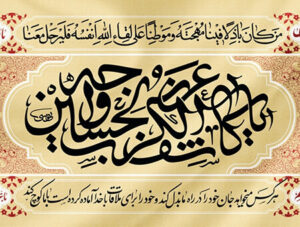 من كان باذلا فينا مهجته وموطنا على لقاء الله نفسه فليرحل معنا
يا كاشف الكرب عن وجه الحسين
هرکس میخواهد جان خود را در راه ما بذل کند و خود را برای ملاقات با خدا آماده کرده است با ما کوچ کند